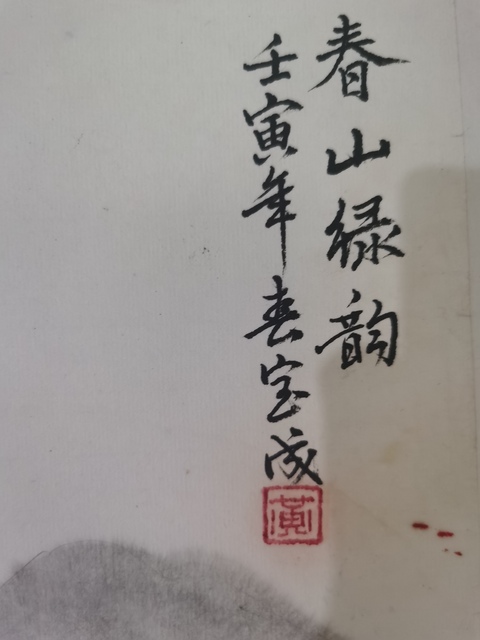 春山绿韵
壬寅年春宝成
黄